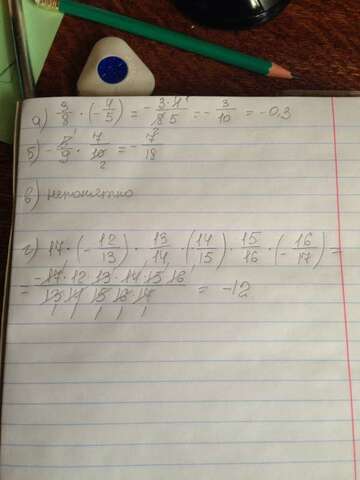 а) 3/8 · (-4/5) = -3·4¹/8₂5 = -3/10 = -0,3
б) -5¹/9 · 7/10₂ = -7/18
в) непонятно
г) 17 · (-12/13) · 13/14 · (-14/15) · 15/16 · (-16/17) =
= -17·12·13·14·15·16/13 14 15 16 17 = -12